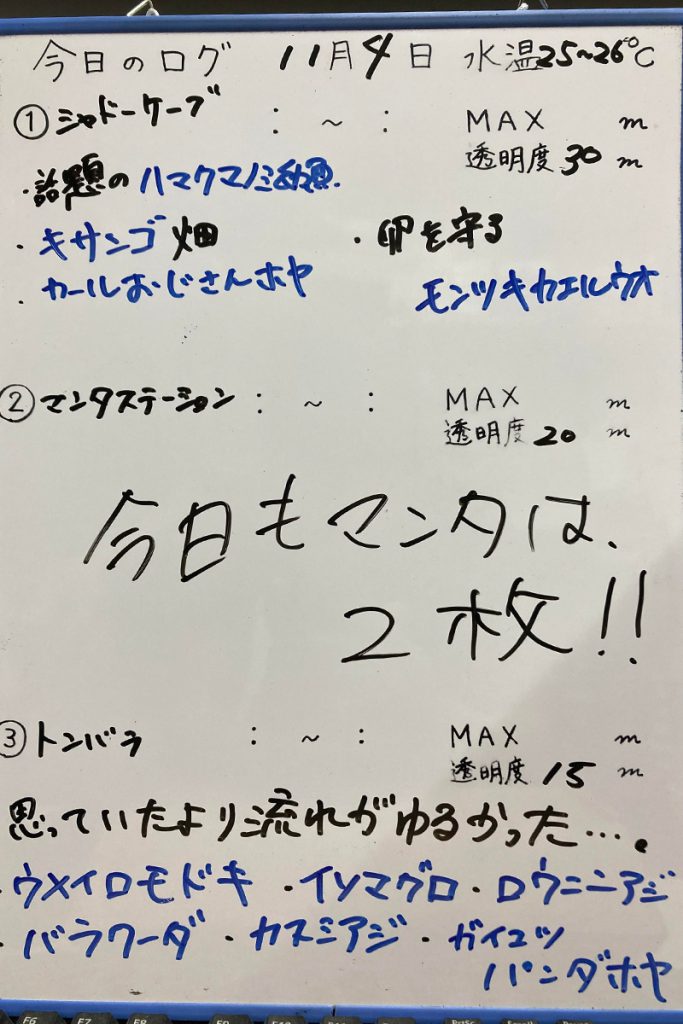 今日のログ 11月4日 水温25~26℃
① シャドーケーブ : ~ : MAX m
透明度 30 m
・話題のハマクマノミ
・キサンゴ畑 ・卵を守る
・カールおじさんホヤ モンツキカエルウオ
② マンタステーション : ~ : MAX m
透明度 20 m
今日もマンタは、
2枚!!
③ トンバラ : ~ : MAX m
透明度 15 m
思っていたより流れがゆるかった…。
・ウメイロモドキ ・イソマグロ ・ロウニンアジ
・バラクーダ ・カスミアジ ・ガイコツ
パンダホヤ
F6 F7 F8 F9 F10